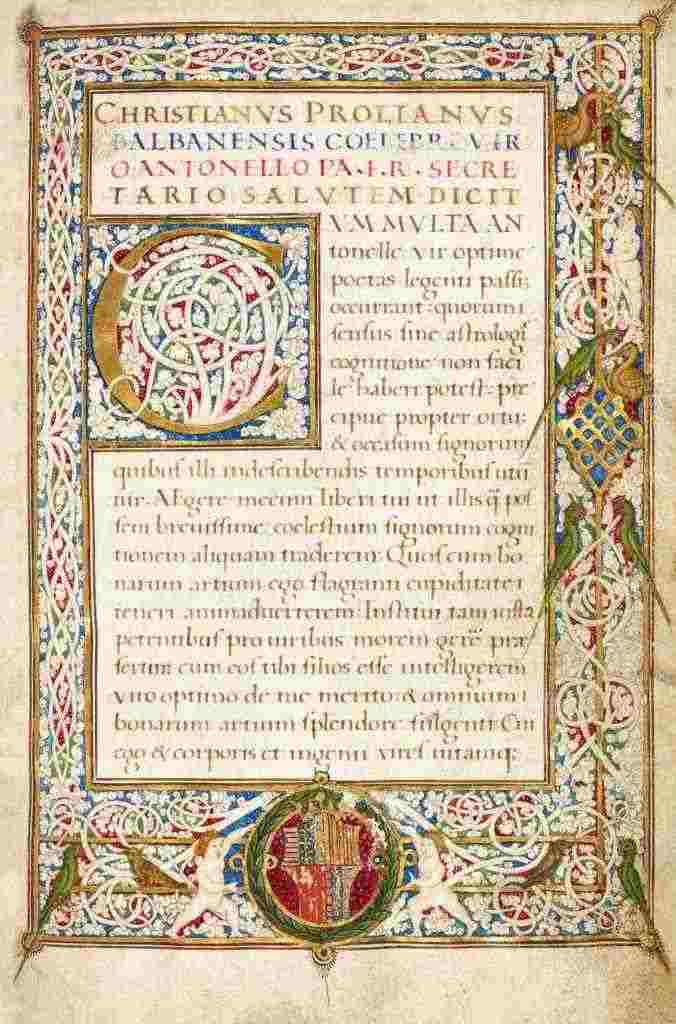 CHRISTIANVS PROLIANVS
BALBANENSIS COELEBR VIR
O ANTONELLO PA·I·R· SECRE
TARIO SALVTEM DICIT
CVM MVLTA AN
tonelle vir optime
poetas legenti passī
occurrant: quorum
sensus sine astrologi
cognitione non faci
le haberi potest: pre
cipue propter ortū:
& occasum signorum
quibus illi indescribendis temporibus utū
tur. AEgere mecum liberi tui ut illis q̃ pos
sem brevissime coelestium signorum cogni
tionem aliquam traderem: Quos cum bo
narum artium ego flagranti cupiditate
teneri animaduerterem: Institui tam iusta
petentibus pro uiribus morem gerē præ
sertim cum eos tibi filios esse intelligerem
viro optimo de me merito: & omnium
bonarum artium splendore fulgenti: Cui
ego & corporis et ingenii vires uitamq;